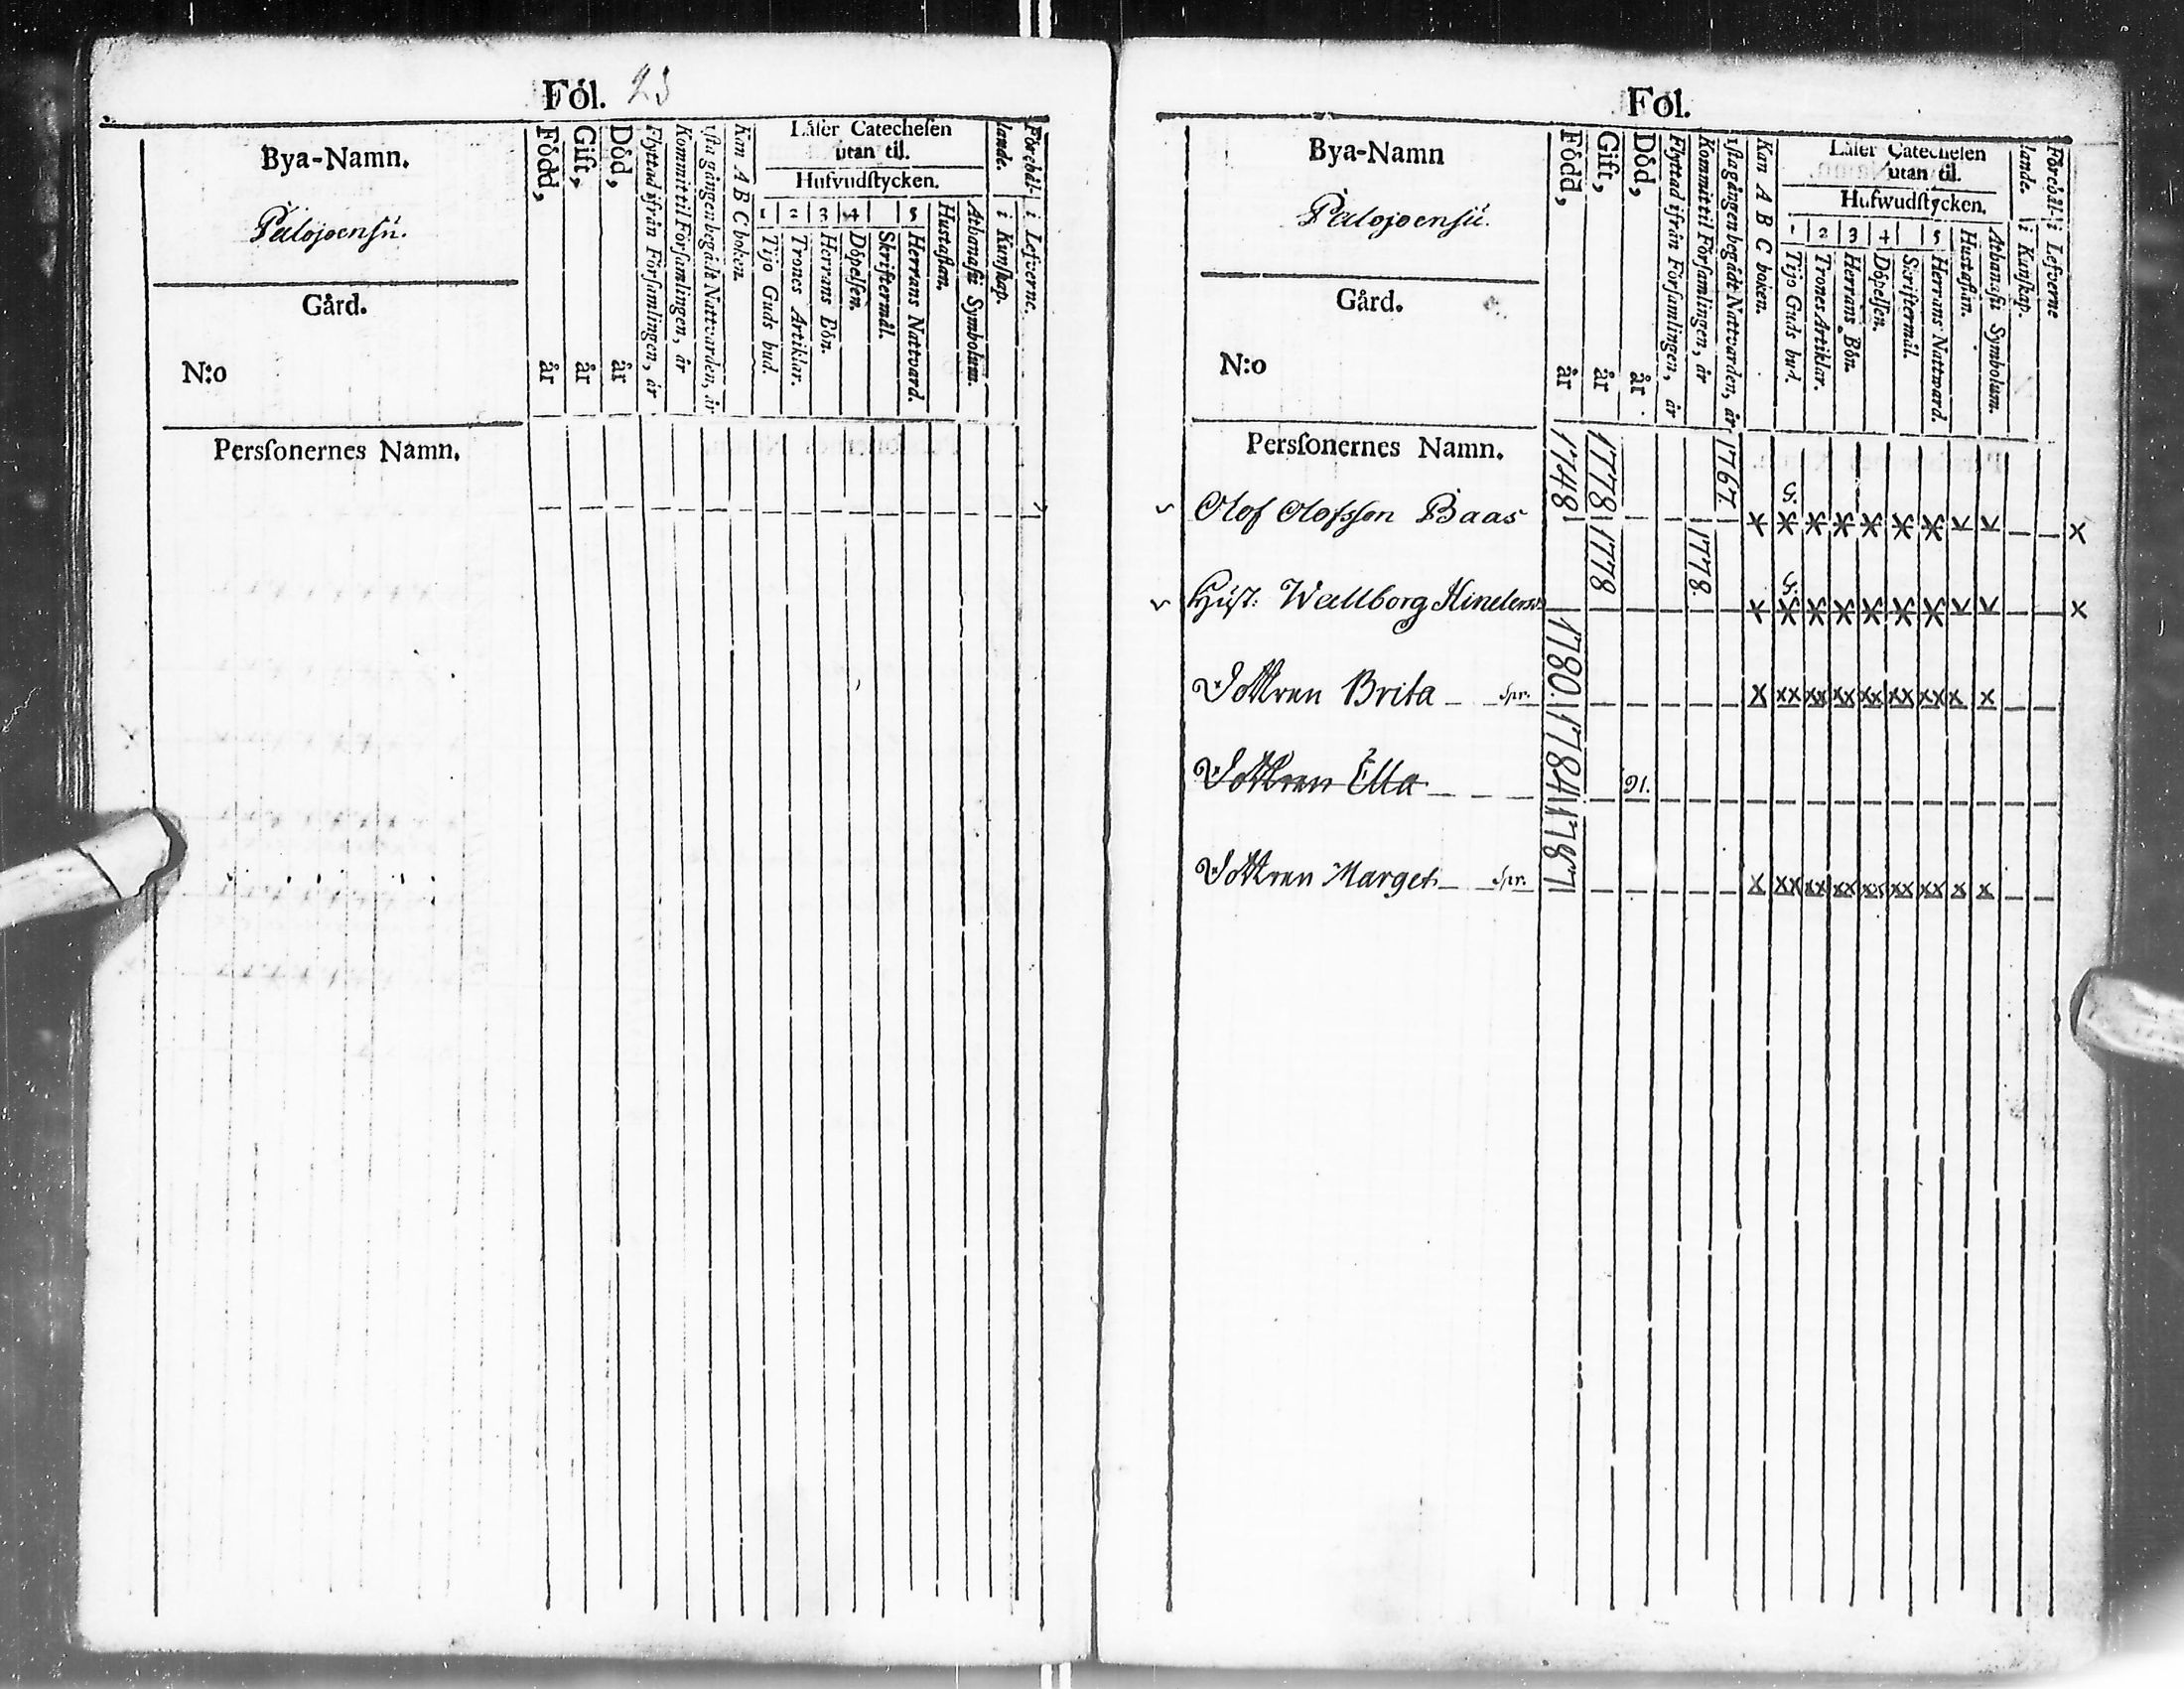 Fol. 23
Bya-Namn.
Palojoensu.
Gård.
N:o
Född, år
Gift, år
Död, år
Flyttad ifrån Församlingen, år
Kommit til Församlingen, år
ista gången begådt Nattvarden, år
Kan A B C boken.
Läser Catechesen
utan til.
Hufvudstycken.
1 2 3 4 5
Tijo Guds bud.
Trones Artiklar.
Herrans Bön.
Döpelsen.
Skriftermål.
Herrans Nattvard.
Hustaflan.
Athanasii Symbolum.
Förehål-
lande.
i Kunskap.
i Lefverne.
Perssonernes Namn.
Fol.
Bya-Namn
Palojoensu.
Gård.
N:o
Född, år
Gift, år
Död, år
Flyttad ifrån Församlingen, år
Kommit til Församlingen, år
ista gången begådt Nattvarden, år
Kan A B C boken.
Läser Catechesen
utan til.
Hufwudstycken.
1 2 3 4 5
Tijo Guds bud.
Trones Artiklar.
Herrans Bön.
Döpelsen.
Skriftermål.
Herrans Nattward.
Hustaflan.
Athanasii Symbolum.
Förehål-
lande.
i Kunskap.
i Lefverne
Perssonernes Namn.
Olof Olofsson Baas 1748 1778 1767.
Hust: Wallborg Hindersd 1778 1778.
Dottren Brita spr. 1780.
Dottren Ella 1784 91.
Dottren Marget spr. 1787